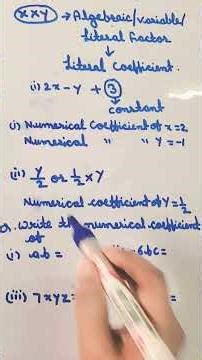 x×y → Algebraic/variable/
literal Factor
↓
Literal Coefficient.
(i) 2x-y + 3
↓
constant
(i) Numerical Coefficient of x=2
Numerical " " y=-1
(ii) y/2 or 1/2 × y
Numerical coefficient of y=1/2
Q. Write the numerical coefficient
of
(i) ab= -6bc=
(iii) 7xyz= =